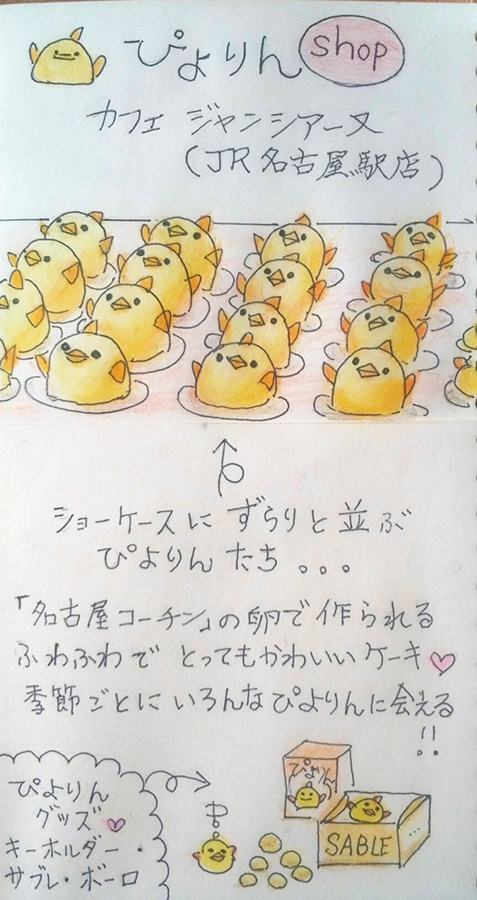 ぴよりん shop
カフェ ジャンシアーヌ
(JR名古屋駅店)
ショーケースに ずらりと並ぶ
ぴよりんたち。。。
「名古屋コーチン」の卵で作られる
ふわふわで とってもかわいいケーキ♡
季節ごとに いろんなぴよりんに会える
!!
ぴよりん
グッズ♡
キーホルダー・
サブレ・ボーロ
ぴよりん
SABLE